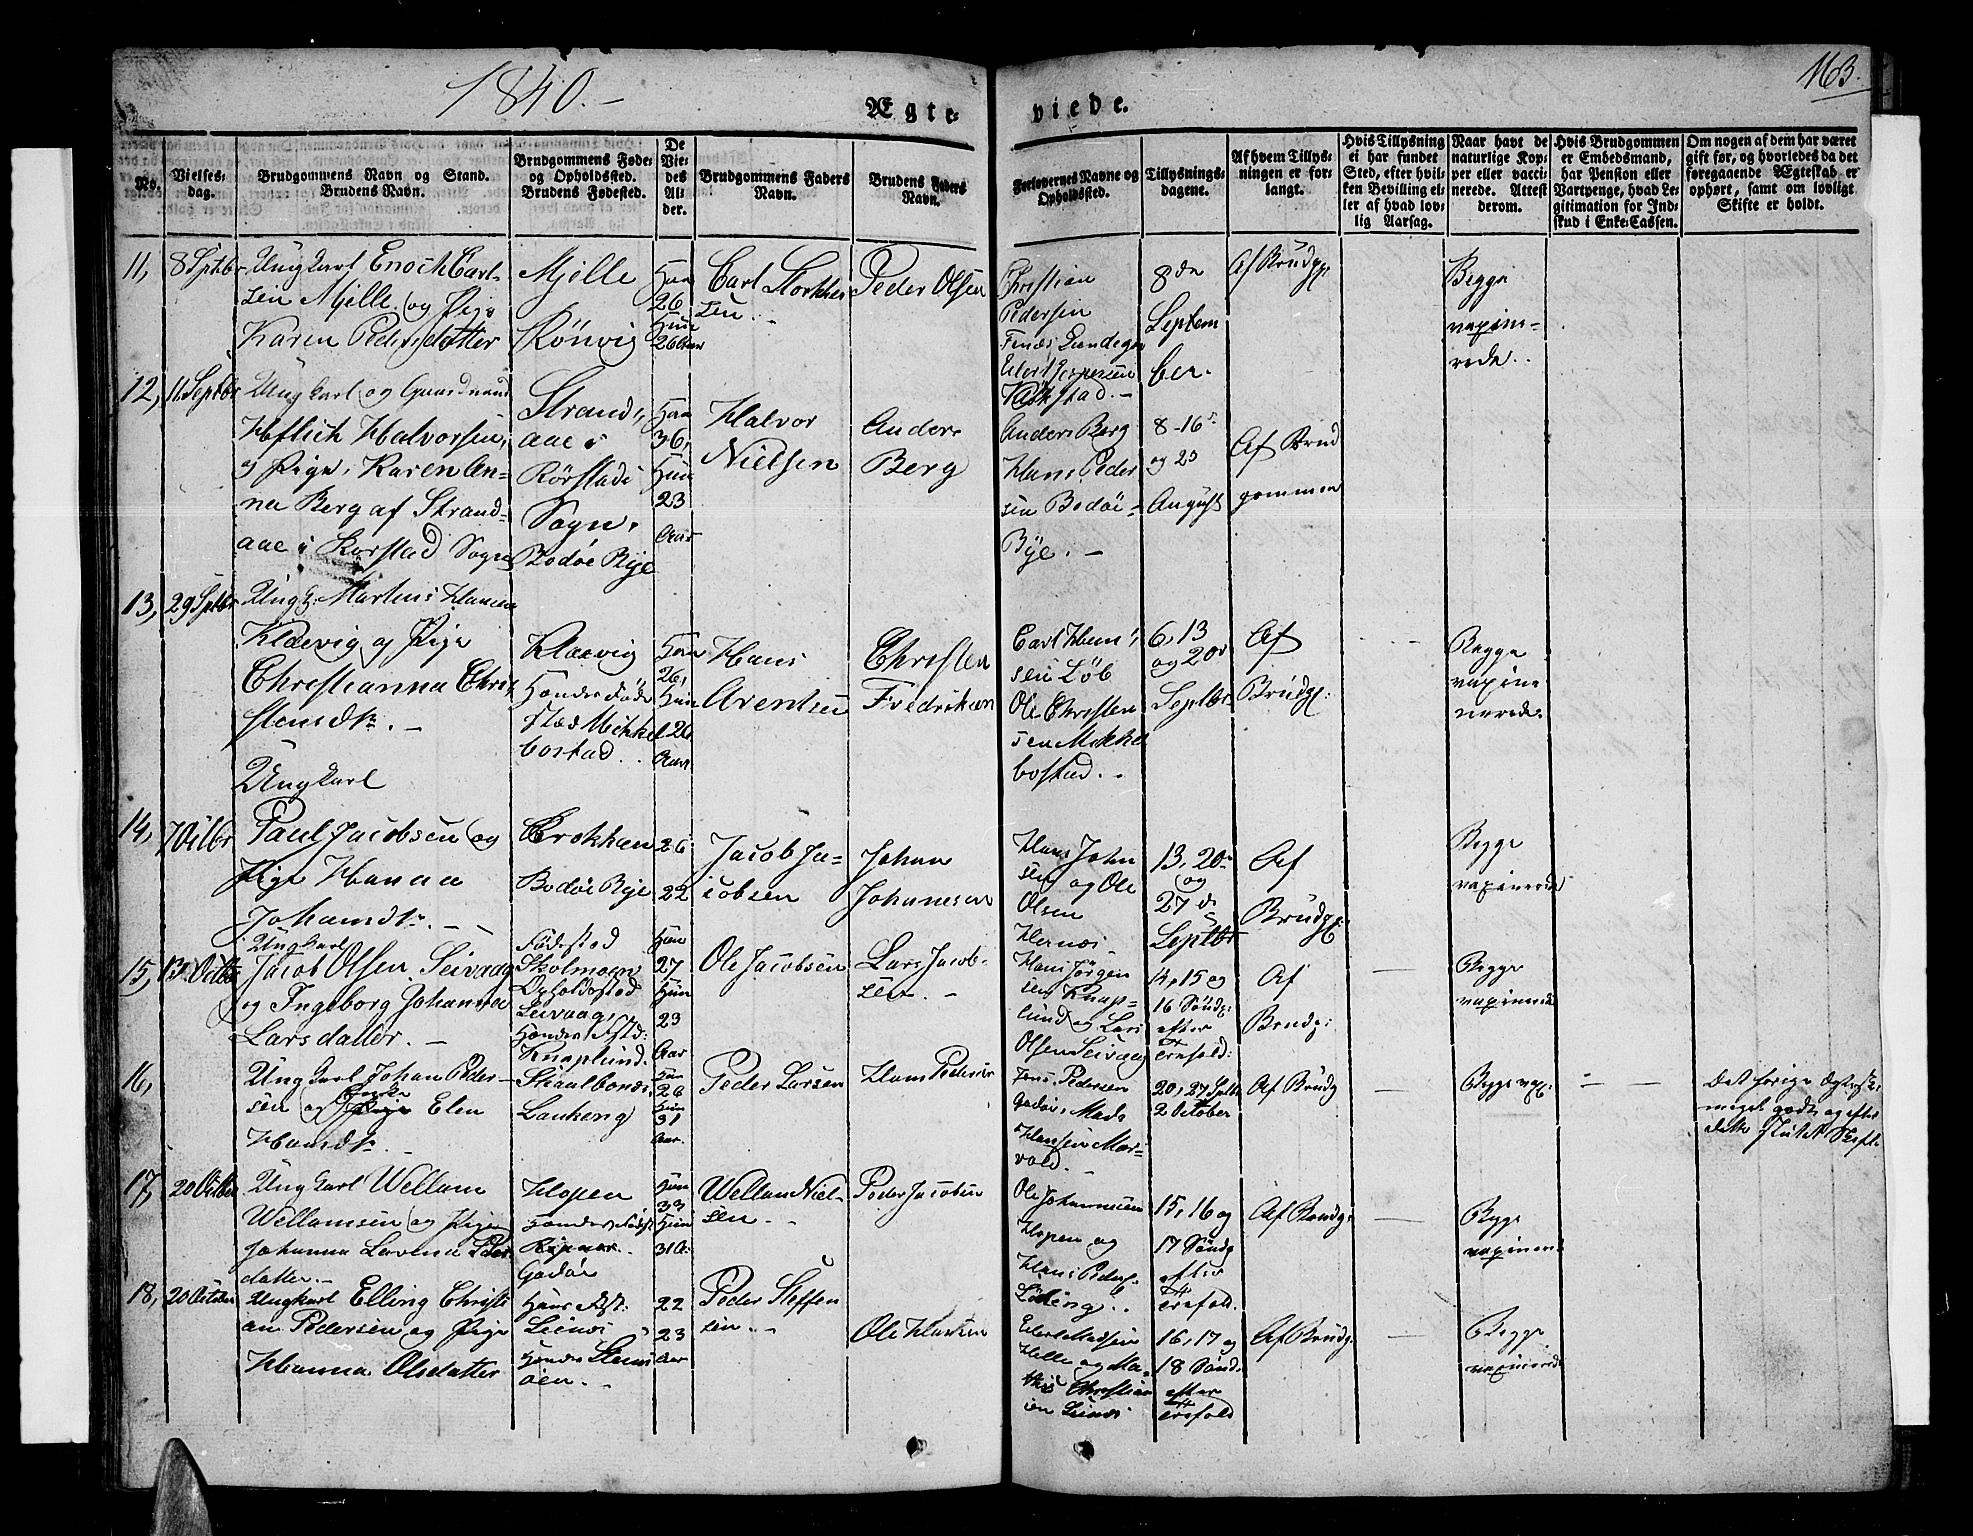 1840.-
163.
Ægte-
viede.
No.
Vielses-
dag.
Brudgommens Navn og Stand.
Brudens Navn.
Brudgommens Føde-
og Opholdssted.
Brudens Fødested.
De
Vie-
des
Al-
der.
Brudgommens Faders
Navn.
Brudens Faders
Navn.
Forlovernes Navne og
Opholdssted.
Tillysnings-
dagene.
Af hvem Tillys-
ningen er for-
langt.
Hvis Tillysning
ei har fundet
Sted, efter hvil-
ken Bevilling el-
ler af hvad lov-
lig Aarsag.
Naar havt de
naturlige Kop-
per eller vacci-
nerede. Attest
derom.
Hvis Brudgommen
er Embedsmand,
har Pension eller
Vartpenge, hvad Le-
gitimation for Ind-
skud i Enke-Cassen.
Om nogen af dem har været
gift før, og hvorledes da det
foregaaende Ægteskab er
ophørt, samt om lovligt
Skifte er holdt.
11, 8 Septbr
Ungkarl Enoch Carl-
sen Mjelle og Pige
Karen Pedersdatter
Mjelle
Rönvig
Han
26
Hun
26 Aar
Carl Storkker
sen
Peder Olsen
Christian
Pedersen
8de
Septem
ber.
Af Brudg:
Begge
vaxine-
rede.
12, 11 Septbr
Ungkarl og Gaardmand
Halvorsen,
og Pige Karen An-
na Berg af Strand-
aae i Rörstad Sogn
Strand-
aae i
Rörstad
Sogn,
Bodöe Bye
Han
36,
Hun
23
Aar
Halvor
Nielsen
Anders
Berg
Anders Berg
Hans Peder
sen Bodöe-
Bye. -
8-16
og 23
August
Af Brud
gommen
13, 29 Septbr
Ungk: Martins Hansen
Klævig og Pige
Christianna Chris
stensdtr. -
Klævig
Hendes Føde
sted Mikkel
bostad.
Han
26,
Hun
26
Aar
Hans
Arentsen
Christen
Fredriksen
Carl Hans
sen Löb
Ole Christen
sen Mikkel
bostad.
6, 13
og 20
Septbr
Af
Brudg:
Begge
vaxine
nerede
14, 7 Octbr
Ungkarl
Paul Jacobsen og
Pige Hanna
Johansdtr.
Bodöe Bye
26
22
Jacob Ja-
cobsen
Johan
Johannesen
Hans John
sen og Ole
Olsen
Hernæs
13, 20
og
27 de
Septbr
Af
Brudg:
Begge
vaxinerede
15, 13 Octbr
Ungkarl
Jacob Olsen Seivaag
og Ingeborg Johanna
Larsdatter. -
Födestad
Skolmoen
Opholdsstad
Seivaag,
Hendes Fst:
Knaplund.
Han
27
Hun
23
Aar
Ole Jacobsen
Lars Jacob-
sen. -
Hans Jörgen
sen Knap-
lund og Lars
Olsen Seivaag
14, 15 og
16 Söndg:
efter
Trefold:
Af
Brudg:
Begge
vaxinerede
16,
Ungkarl Johan Peder-
sen og Enke Elen
Hansdtr.
Skaalbones
Laukeng
Han
26
Hun
31
Aar.
Peder Larsen
Hans Pedersen
Jens Pedersen
Godöe, Mads
Hansen Mor-
vold.
20, 27 Septbr
2 October
Af Brudg
Begge vax:
17, 20 Octbr
Ungkarl Wellam
Wellamsen og Pige
Johanna Lovina Peder
datter.-
Hopen
Hendes Födest
Godöe
Han
33
Hun
31 A:
Wellam Niel-
sen.
Peder Jacobsen
Ole Johannesen
Hopen og
Hans Peders
Löding.
15, 16 og
17 Söndg
efter
Trefold.
Af Brudg:
Begge
vaxinered
18, 20 October
Ungkarl Elling Christi
an Pedersen og Pige
Hanna Olsdatter
Hans Fst:
Seines
Hendes
öen.
22
23
Aar
Peder Steffen
sen.
Ole Hansen
Eilert Madsen
Helle og Ma-
this Christian
sen Seines
16, 17 og
18 Sönd:
efter
Trefold
Af Brudg:
Begge
vaxinerede